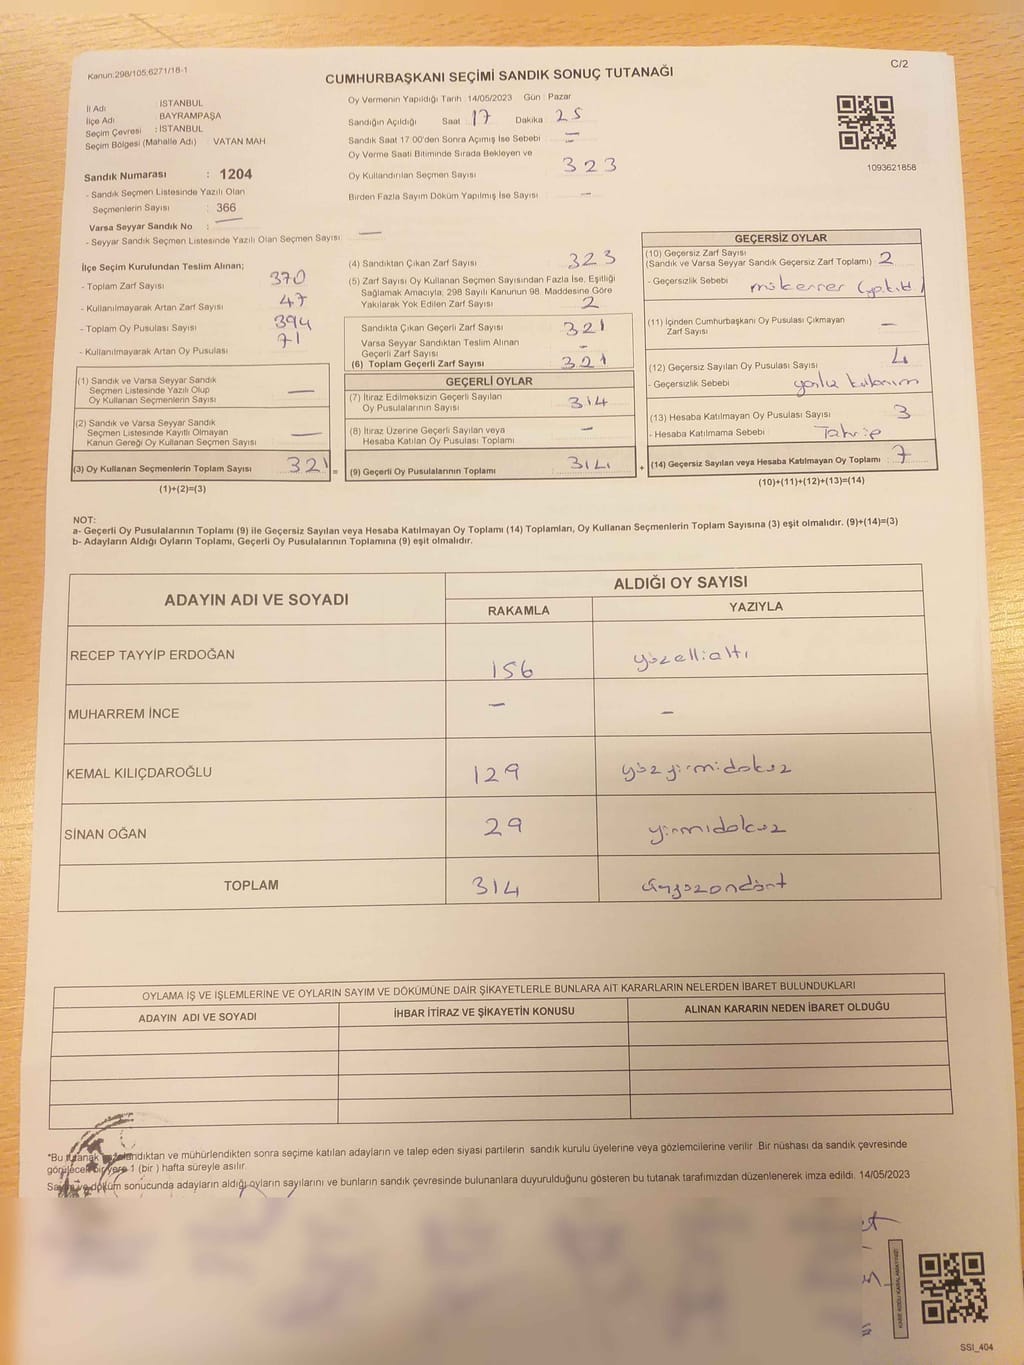 Kanun:298/105,6271/18-1
C/2
CUMHURBAŞKANI SEÇİMİ SANDIK SONUÇ TUTANAĞI
İl Adı : İSTANBUL
İlçe Adı BAYRAMPAŞA
Seçim Çevresi : İSTANBUL
Seçim Bölgesi (Mahalle Adı) VATAN MAH
Sandık Numarası : 1204
- Sandık Seçmen Listesinde Yazılı Olan
Seçmenlerin Sayısı : 366
Varsa Seyyar Sandık No : —
- Seyyar Sandık Seçmen Listesinde Yazılı Olan Seçmen Sayısı —
Oy Vermenin Yapıldığı Tarih 14/05/2023 Gün : Pazar
Sandığın Açıldığı Saat 17 Dakika 25
Sandık Saat 17:00'den Sonra Açılmış İse Sebebi —
Oy Verme Saati Bitiminde Sırada Bekleyen ve
Oy Kullandırılan Seçmen Sayısı 323
Birden Fazla Sayım Döküm Yapılmış İse Sayısı —
1093621858
İlçe Seçim Kurulundan Teslim Alınan;
- Toplam Zarf Sayısı 370
- Kullanılmayarak Artan Zarf Sayısı 47
- Toplam Oy Pusulası Sayısı 394
- Kullanılmayarak Artan Oy Pusulası 71
(1) Sandık ve Varsa Seyyar Sandık
Seçmen Listesinde Yazılı Olup
Oy Kullanan Seçmenlerin Sayısı —
(2) Sandık ve Varsa Seyyar Sandık
Seçmen Listesinde Kayıtlı Olmayan
Kanun Gereği Oy Kullanan Seçmen Sayısı —
(3) Oy Kullanan Seçmenlerin Toplam Sayısı 321 =
(1)+(2)=(3)
(4) Sandıktan Çıkan Zarf Sayısı 323
(5) Zarf Sayısı Oy Kullanan Seçmen Sayısından Fazla İse, Eşitliği
Sağlamak Amacıyla, 298 Sayılı Kanunun 98. Maddesine Göre
Yakılarak Yok Edilen Zarf Sayısı 2
Sandıkta Çıkan Geçerli Zarf Sayısı 321
Varsa Seyyar Sandıktan Teslim Alınan
Geçerli Zarf Sayısı —
(6) Toplam Geçerli Zarf Sayısı 321
GEÇERLİ OYLAR
(7) İtiraz Edilmeksizin Geçerli Sayılan
Oy Pusulalarının Sayısı 314
(8) İtiraz Üzerine Geçerli Sayılan veya
Hesaba Katılan Oy Pusulası Toplamı —
(9) Geçerli Oy Pusulalarının Toplamı 314 +
GEÇERSİZ OYLAR
(10) Geçersiz Zarf Sayısı
(Sandık ve Varsa Seyyar Sandık Geçersiz Zarf Toplamı) 2
- Geçersizlik Sebebi mükerrer
(11) İçinden Cumhurbaşkanı Oy Pusulası Çıkmayan
Zarf Sayısı —
(12) Geçersiz Sayılan Oy Pusulası Sayısı 4
- Geçersizlik Sebebi
(13) Hesaba Katılmayan Oy Pusulası Sayısı 3
- Hesaba Katılmama Sebebi Tahrip
(14) Geçersiz Sayılan veya Hesaba Katılmayan Oy Toplamı : 7
(10)+(11)+(12)+(13)=(14)
NOT:
a- Geçerli Oy Pusulalarının Toplamı (9) ile Geçersiz Sayılan veya Hesaba Katılmayan Oy Toplamı (14) Toplamları, Oy Kullanan Seçmenlerin Toplam Sayısına (3) eşit olmalıdır. (9)+(14)=(3)
b- Adayların Aldığı Oyların Toplamı, Geçerli Oy Pusulalarının Toplamına (9) eşit olmalıdır.
ADAYIN ADI VE SOYADI
ALDIĞI OY SAYISI
RAKAMLA YAZIYLA
RECEP TAYYİP ERDOĞAN 156 yüzellialtı
MUHARREM İNCE — —
KEMAL KILIÇDAROĞLU 129 yüzyirmidokuz
SİNAN OĞAN 29 yirmidokuz
TOPLAM 314 üçyüzondört
OYLAMA İŞ VE İŞLEMLERİNE VE OYLARIN SAYIM VE DÖKÜMÜNE DAİR ŞİKAYETLERLE BUNLARA AİT KARARLARIN NELERDEN İBARET BULUNDUKLARI
ADAYIN ADI VE SOYADI İHBAR İTİRAZ VE ŞİKAYETİN KONUSU ALINAN KARARIN NEDEN İBARET OLDUĞU
*Bu tutanak imzalandıktan ve mühürlendikten sonra seçime katılan adayların ve talep eden siyasi partilerin sandık kurulu üyelerine veya gözlemcilerine verilir. Bir nüshası da sandık çevresinde
görülecek bir yere 1 (bir ) hafta süreyle asılır.
Sayım ve döküm sonucunda adayların aldığı oyların sayılarını ve bunların sandık çevresinde bulunanlara duyurulduğunu gösteren bu tutanak tarafımızdan düzenlenerek imza edildi. 14/05/2023
SSI_404